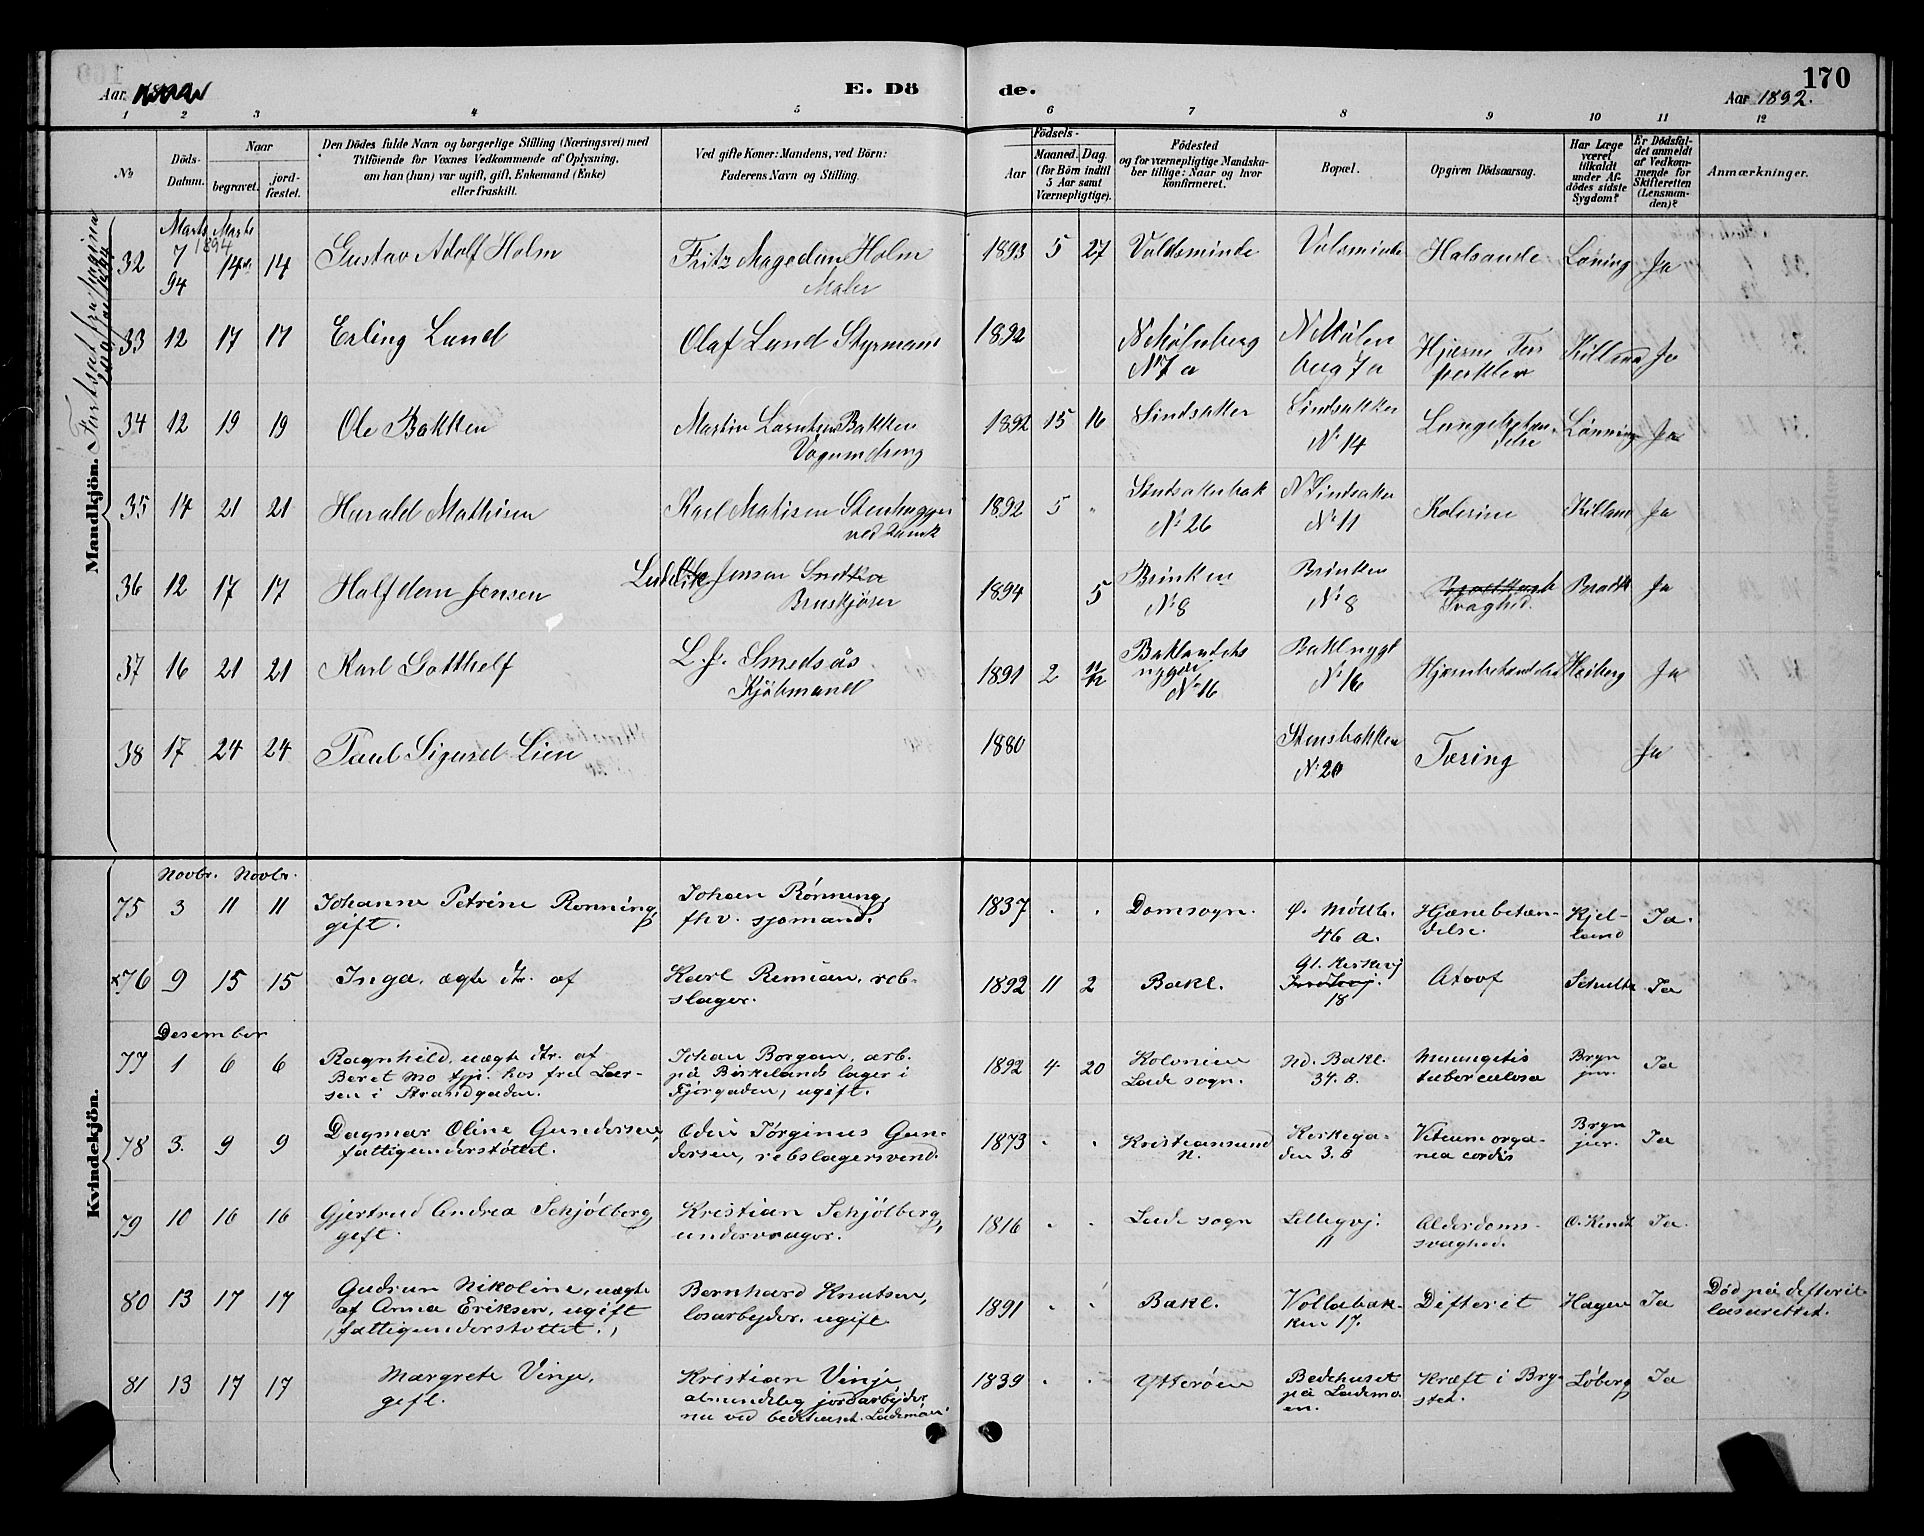 170
Aar
E. Dö de.
Aar 1892.
1 2 3 4 5 6 7 8 9 10 11 12
No
Döds-Datum.
Naar
begravet.
jord-fæstet.
Den Dödes fulde Navn og borgerlige Stilling (Næringsvei) med
Tilföiende for Voxnes Vedkommende af Oplysning,
om han (han) var ugift, gift, Enkemand (Enke)
eller fraskilt.
Ved gifte Koner: Mandens, ved Börn:
Faderens Navn og Stilling.
Födsels-
Aar
Maaned. Dag.
(for Börn indtil
5 Aar samt
Værnepligtige).
Födested
og for værnepligtige Mandska-
ber tillige: Naar og hvor
konfirmeret.
Bopæl.
Opgiven Dödsaarsag.
Har Læge
været
tilkaldt
under Af-
dödes sidste
Sygdom?
Er Dödsfal-
det anmeldt
af Vedkom-
mende for
Skifteretten
(Lensman-
den)?
Anmærkninger.
Mandkjön.
Fortsat fra pagina
Marts Marts
1894
32 7 94 14 14 Gustav Adolf Holm Fritz Magedan Holm Maler 1893 5 27 Voldsminde Volsminde Halsonde Löning Ja
33 12 17 17 Erling Lund Olaf Lund Styrmann 1892 N Mölnberg No 7 a N Mölen berg 7 a Hjerne Tuberkler Killand Ja
34 12 19 19 Ole Bakken Martin Larntsen Bakken Vognmdreng 1892 15 16 Sindsaker Sindsakker No 14 Lungebetændelse Lönning Ja
35 14 21 21 Harald Mathisen Karl Matisen Stenhugger 1892 5 " Sindsakerbak No 26 N Sindsaker No 11 Kolerine Killand Ja
36 12 17 17 Halfdan Jensen Jensen Snedker 1894 5 Brinken No 8 Brinken No 8 Svaghed. Bradt Ja
37 16 21 21 Karl Gotthelf L. J. Smedsås Kjöbmand 1891 2 11/12 Baklandets nygde No 16 Baklnygt No 16 Hjernebetændelse Heiberg Ja
38 17 24 24 Paul Sigurd Lien 1880 Stensbakken No 20 Tæring Ja
Kvindekjön.
Novbr. Novbr.
75 3 11 11 Johanne Petrine Rønning, gift. Johan Rønning, fhv. sjømand. 1837 . . Domsogn. Ø. Møllb. 46 a. Hjænebetændelse. Kjelland Ja.
x76 9 15 15 Inga, ægte dtr. af Karl Remian, rebslager. 1892 11 2 Bakl. Gl. kirkevj 18 Atrof Schulte Ja
Desember
77 1 6 6 Ragnhild, uægte dtr. af Beret Mo tjt. hos frd Larsen i Strandgaden. Johan Borgan, arb. på Birkelands lager i Fjorgaden, ugift. 1892 4 20 Kolonien Lade sogn. Nd. Bakl. 34. B. Meningetis tuberculosa Brynjur. Ja
78 3. 9 9 Dagmar Oline Gundersen, fattigunderstøttet. Odin Jørginus Gundersen, rebslagersvend. 1873 . . Kristiansund N. Kirkegaden 3. B Vitium organea cordis Brynjur. Ja
79 10 16 16 Gjertrud Andrea Schjølberg, gift. Kristian Schjølberg, undervrager. 1816 . . Lade sogn Lillegvj. 11 Alderdomssvaghed. O. Kindt Ja.
80 13 17 17 Gudrun Nikoline, uægte af Anna Eriksen, ugift (fattigunderstøttet.) Bernhard Knutsen, løsarbejder, ugift 1891 . . Bakl. Vollabakken 17. Difterit Hagen Ja Død på difteritlasarettet.
81 13 17 17 Margrete Vinje, gift. Kristian Vinje almindelig jordarbejder nu ved bedehuset Lademoen 1839 . . Ytterøen Bedehuset på Lademoen. Kræft i Brystet. Løberg Ja